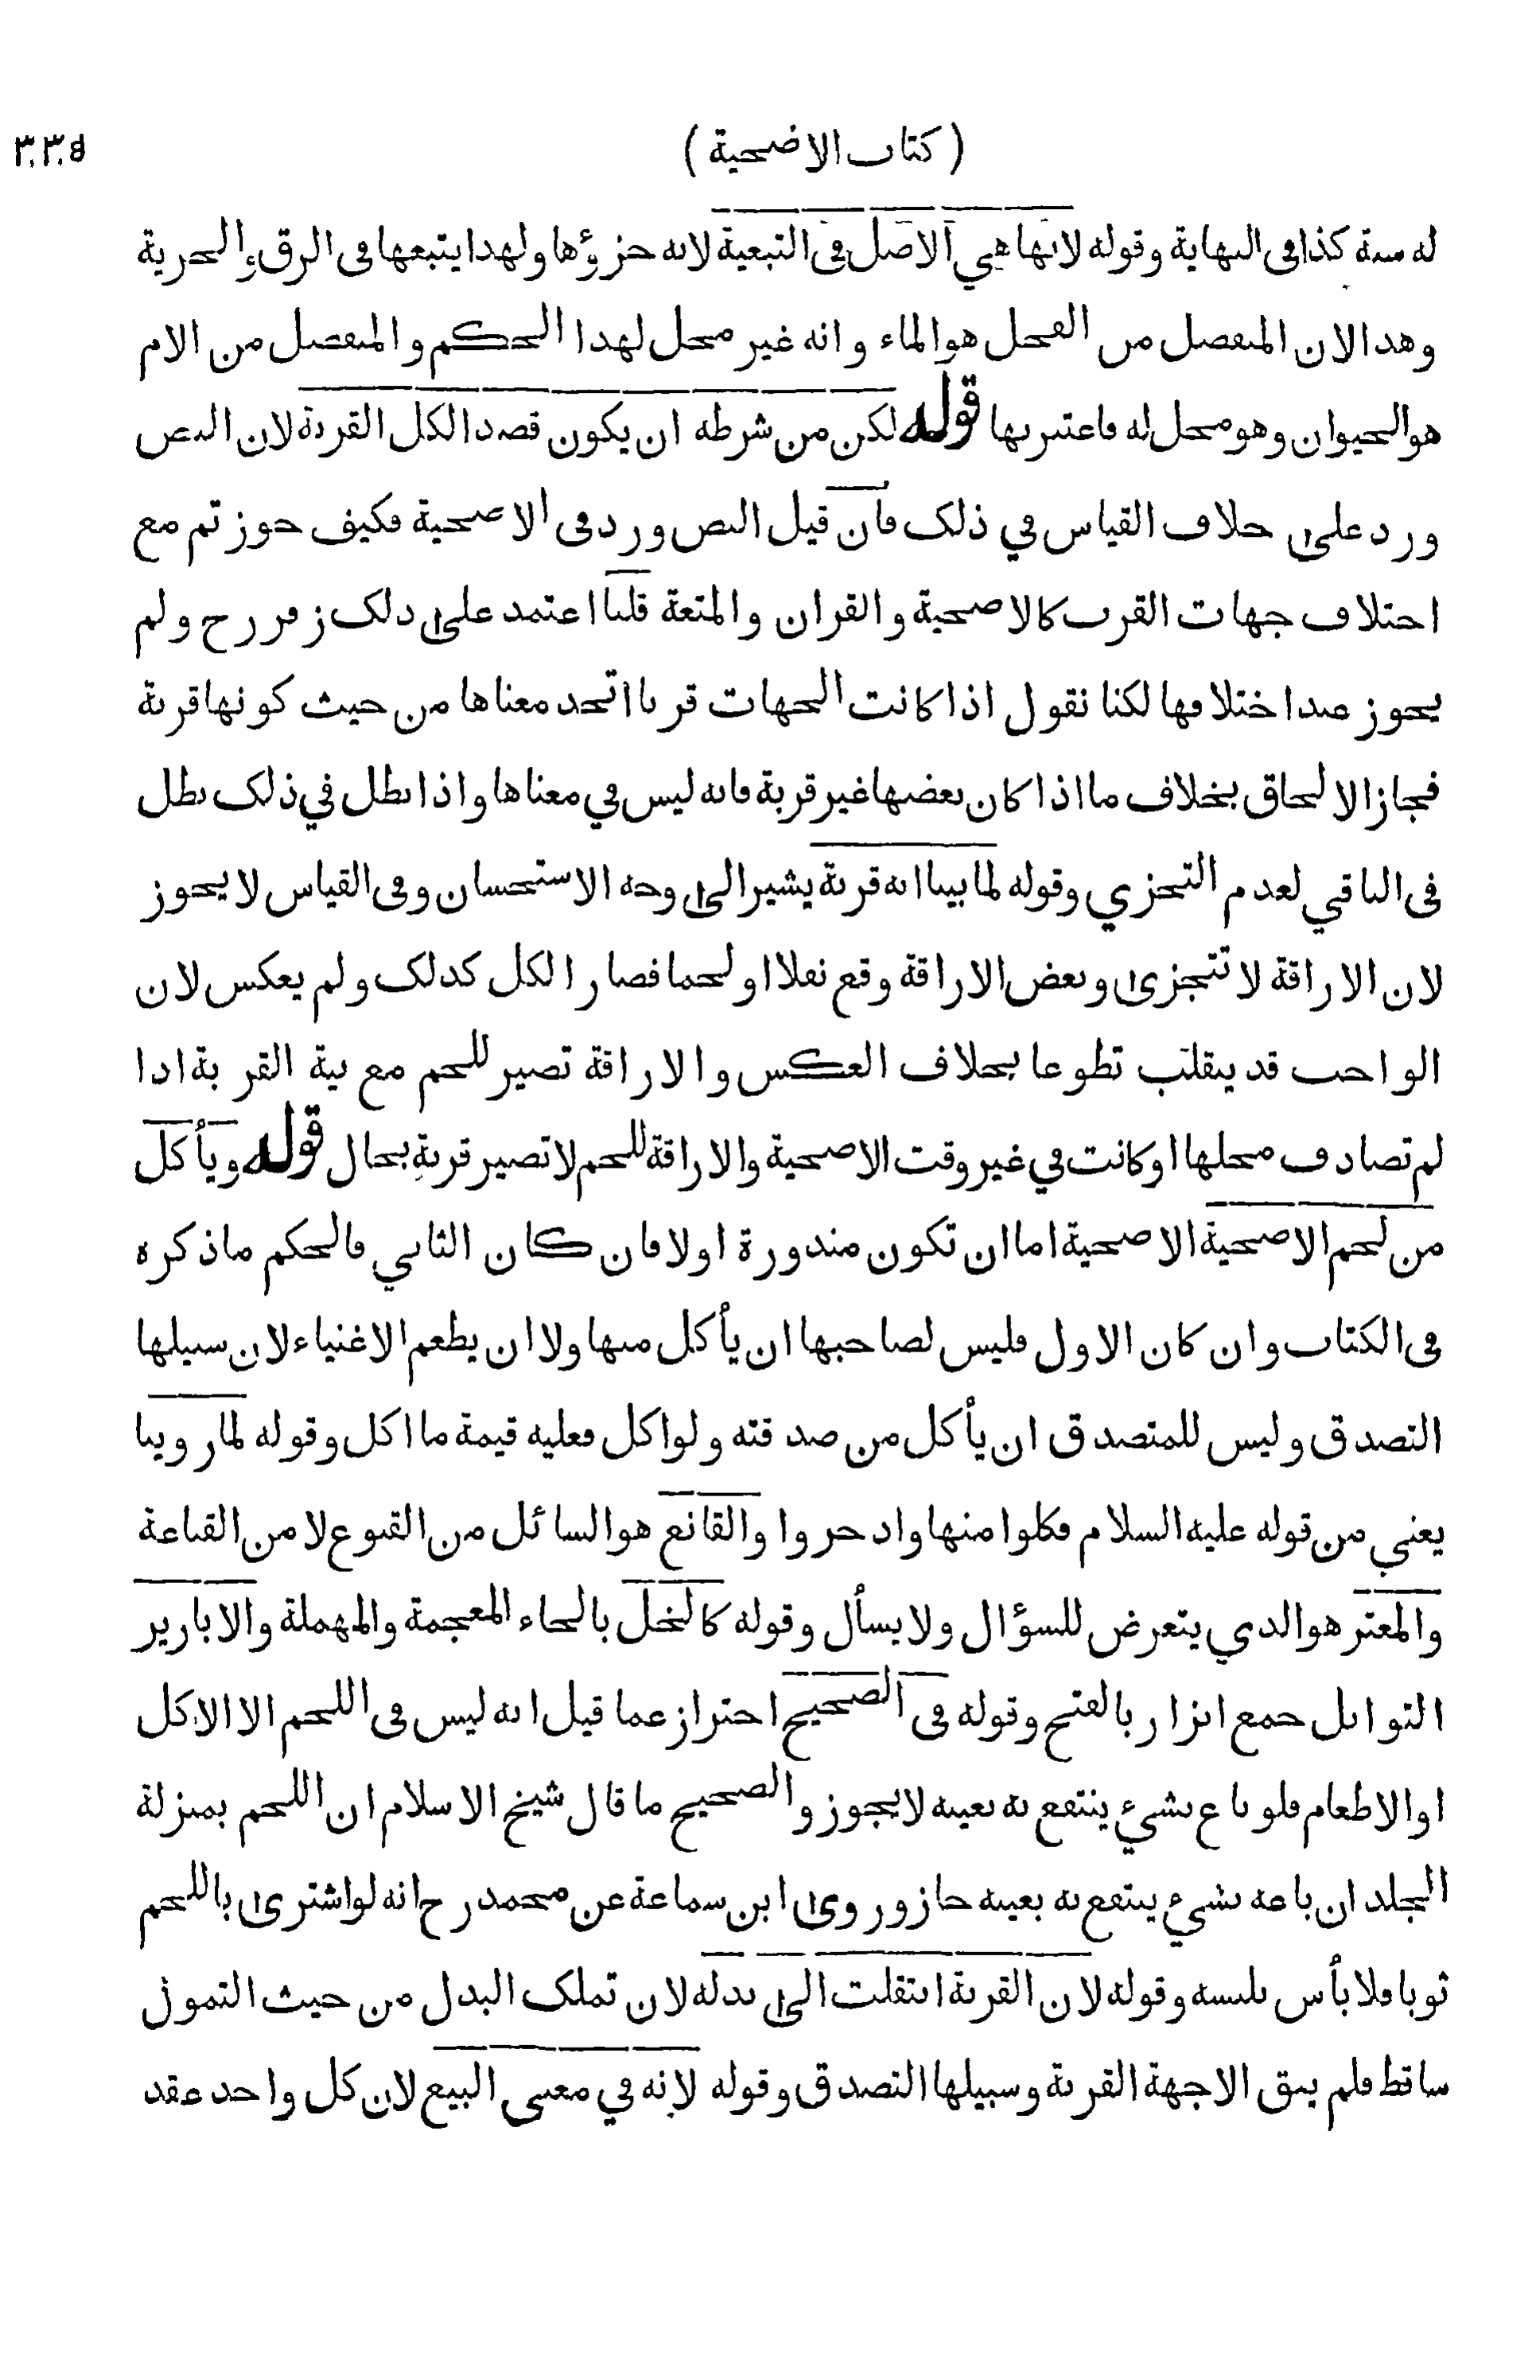 ( كتاب الاضحية ) ٣٣٥
له سنة كذا في النهاية وقوله لانها هي الاصل في التبعية لانه جزؤها ولهذا يتبعها في الرق والحرية
وهذا لان المنفصل من الفحل هو الماء وانه غير محل لهذا الحكم والمنفصل من الام
هو الحيوان وهو محل له فاعتبر بها قوله لكن من شرطه ان يكون قصد الكل القربة لان النص
ورد على خلاف القياس في ذلك فان قيل النص ورد في الاضحية فكيف جوزتم مع
اختلاف جهات القرب كالاضحية والقران والمتعة قلنا اعتمد على ذلك زفر رح ولم
يجوز عند اختلافها لكنا نقول اذا كانت الجهات قربا اتحد معناها من حيث كونها قربة
فجاز الالحاق بخلاف ما اذا كان بعضها غير قربة فانه ليس في معناها واذا بطل في ذلك بطل
في الباقي لعدم التجزي وقوله لما بينا انه قربة يشير الى وجه الاستحسان وفي القياس لا يجوز
لان الاراقة لا تتجزى وبعض الاراقة وقع نفلا او لحما فصار الكل كذلك ولم يعكس لان
الواجب قد ينقلب تطوعا بخلاف العكس والاراقة تصير للحم مع نية القربة اذا
لم تصادف محلها او كانت في غير وقت الاضحية والاراقة للحم لا تصير قربة بحال قوله ويأكل
من لحم الاضحية الاضحية اما ان تكون منذورة اولا فان كان الثاني فالحكم ما ذكره
في الكتاب وان كان الاول فليس لصاحبها ان يأكل منها ولا ان يطعم الاغنياء لان سبيلها
التصدق وليس للمتصدق ان يأكل من صدقته ولو اكل فعليه قيمة ما اكل وقوله لما روينا
يعني من قوله عليه السلام فكلوا منها وادخروا والقانع هو السائل من القنوع لا من القناعة
والمعتر هو الذي يتعرض للسؤال ولا يسأل وقوله كالخل بالخاء المعجمة والمهملة والابازير
التوابل جمع ابزار بالفتح وقوله في الصحيح احتراز عما قيل انه ليس في اللحم الا الاكل
او الاطعام فلو باع بشيء ينتفع به بعينه لا يجوز والصحيح ما قال شيخ الاسلام ان اللحم بمنزلة
الجلد ان باعه بشيء ينتفع به بعينه جاز وروى ابن سماعة عن محمد رح انه لو اشترى باللحم
ثوبا فلا بأس بلبسه وقوله لان القربة انتقلت الى بدله لان تملك البدل من حيث التمول
ساقط فلم يبق الا جهة القربة وسبيلها التصدق وقوله لانه في معنى البيع لان كل واحد عقد